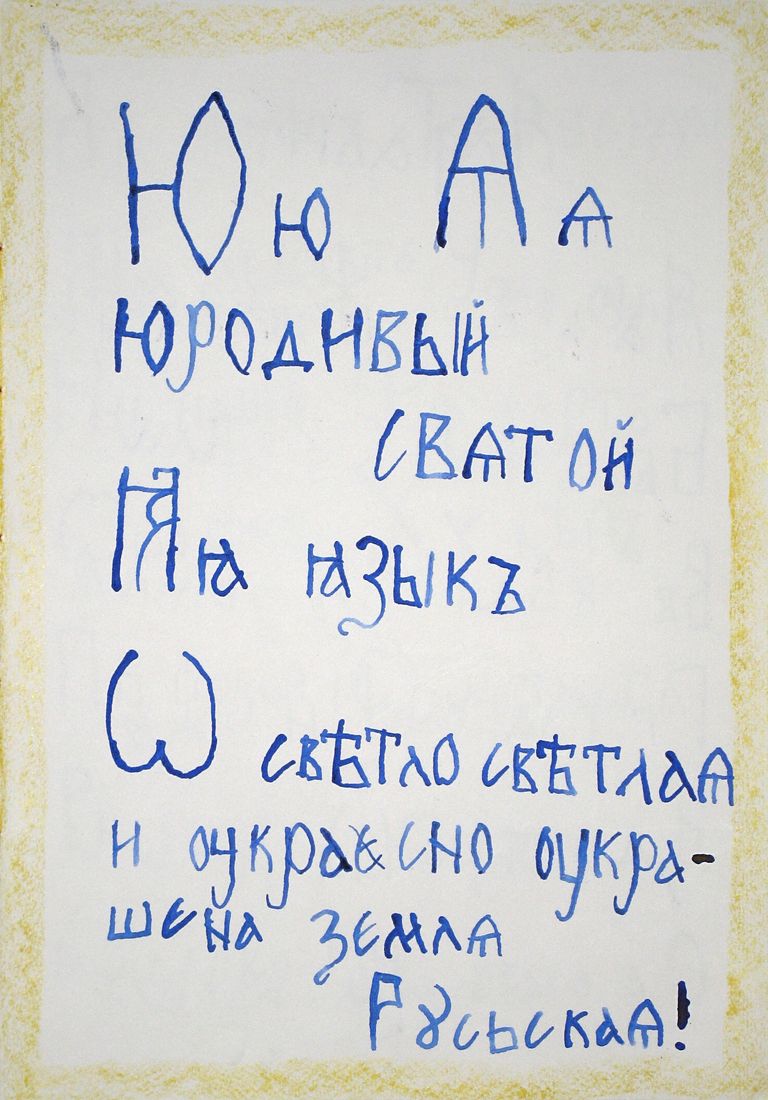 Ю ю Ѧ ѧ
юродивый
свѧтой
Ꙗ ꙗ ꙗзыкъ
Ѡ свѣтло свѣтлаѧ
и оукрасно оукра-
шена землѧ
Рꙋсьскаѧ!